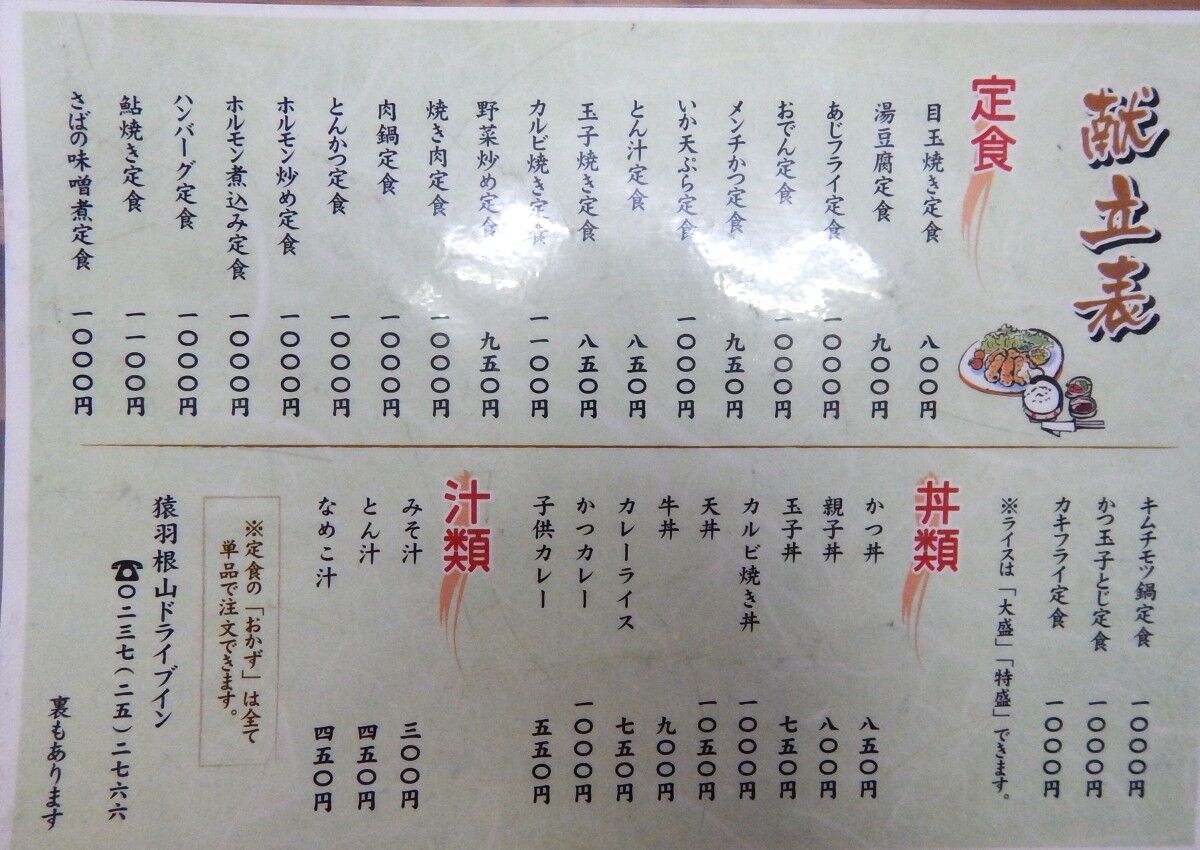 献立表
定食
目玉焼き定食 八〇〇円
湯豆腐定食 九〇〇円
あじフライ定食 一〇〇〇円
おでん定食 一〇〇〇円
メンチかつ定食 九五〇円
いか天ぷら定食 一〇〇〇円
とん汁定食 八五〇円
玉子焼き定食 八五〇円
カルビ焼き定食 一一〇〇円
野菜炒め定食 九五〇円
焼き肉定食 一〇〇〇円
肉鍋定食 一〇〇〇円
とんかつ定食 一〇〇〇円
ホルモン炒め定食 一〇〇〇円
ホルモン煮込み定食 一〇〇〇円
ハンバーグ定食 一〇〇〇円
鮎焼き定食 一一〇〇円
さばの味噌煮定食 一〇〇〇円
キムチモツ鍋定食 一〇〇〇円
かつ玉子とじ定食 一〇〇〇円
カキフライ定食 一〇〇〇円
※ライスは「大盛」「特盛」できます。
丼類
かつ丼 八五〇円
親子丼 八〇〇円
玉子丼 七五〇円
カルビ焼き丼 一〇〇〇円
天丼 一〇五〇円
牛丼 九〇〇円
カレーライス 七五〇円
かつカレー 一〇〇〇円
子供カレー 五五〇円
汁類
みそ汁 三〇〇円
とん汁 四五〇円
なめこ汁 四五〇円
※定食の「おかず」は全て
単品で注文できます。
猿羽根山ドライブイン
☎〇二三七(二五)二七六六
裏もあります